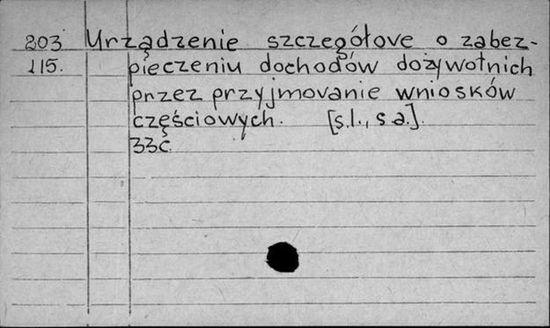 203 Urządzenie szczegółove o zabez-
115. pieczeniu dochodów dożywotnich
przez przyjmovanie wniosków
częściowych. [s.l., s a.].
33c.